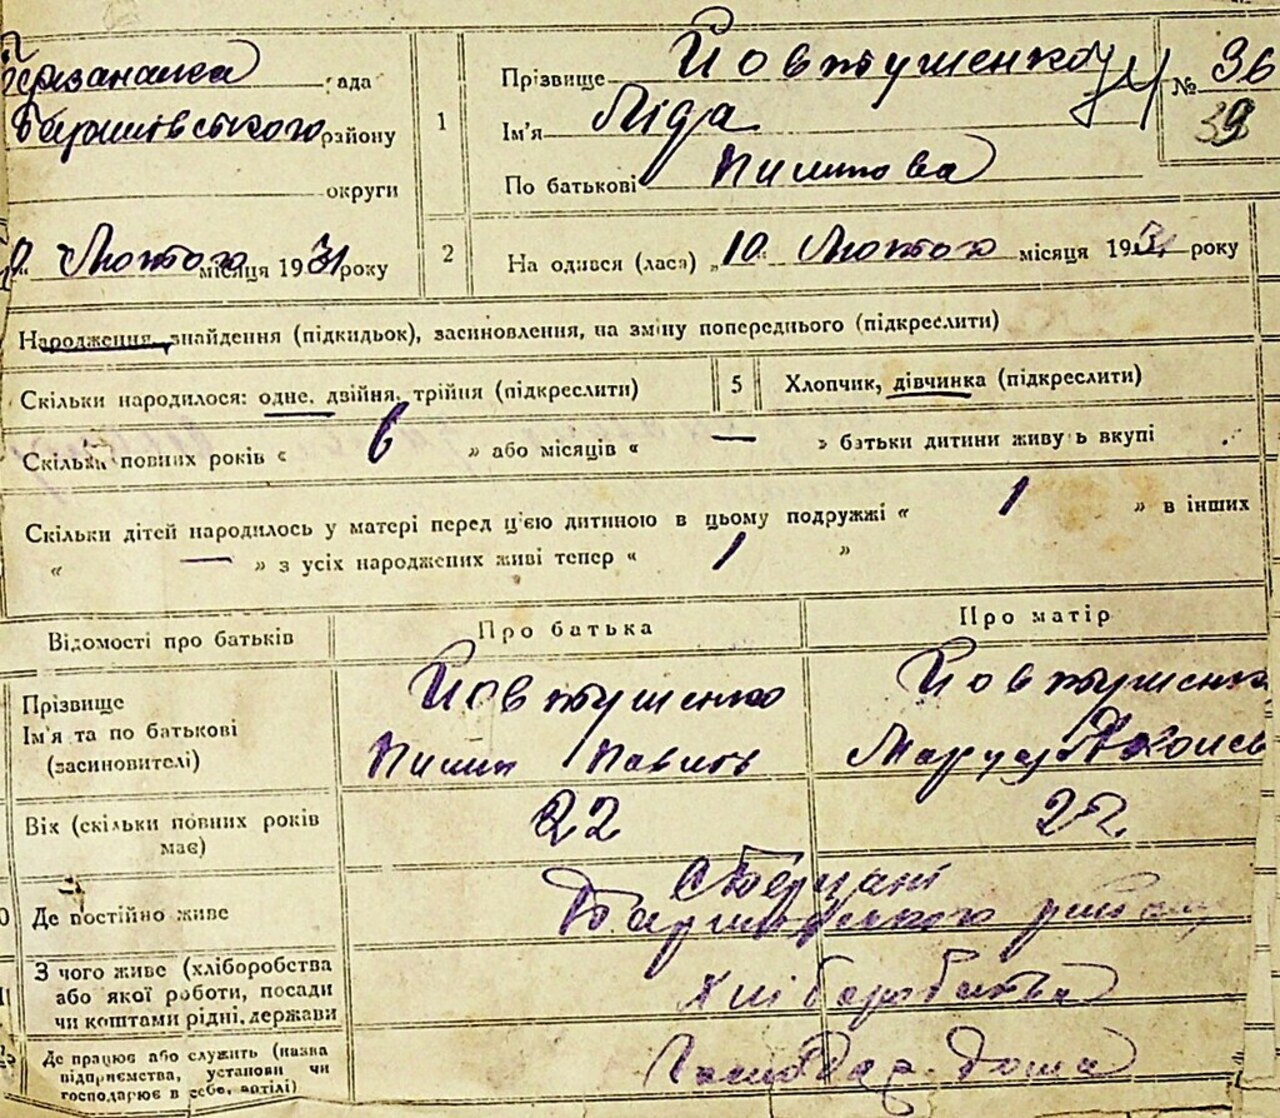 Прізвище Йовтушенко № 36
рада
Ім'я Ліда 39
району 1
По батькові Пилипова
округи
Лютого місяця 1931 року
2 На одився (лася) „10" Лютого місяця 1931 року
Народження, знайдення (підкидьок), засиновлення, на зміну попереднього (підкреслити)
Скільки народилося: одне, двійня, трійня (підкреслити) 5 Хлопчик, дівчинка (підкреслити)
Скільки повних років « 6 » або місяців « — » батьки дитини живу ь вкупі
Скільки дітей народилось у матері перед ц'єю дитиною в цьому подружжі « 1 » в інших
« — » з усіх народжених живі тепер « 1 »
Відомості про батьків Про батька Про матір
Прізвище Йовтушенко Йовтушенко
Ім'я та по батькові
(засиновителі) Пилип Павлів
Вік (скільки повних років 22 22
має)
Де постійно живе
району
З чого живе (хліборобства
або якої роботи, посади Хліборобства
чи коштами рідні, держави
Де працює або служить (назва
підприємства, установи чи Господар. дома
господарює в себе, вдтілі)